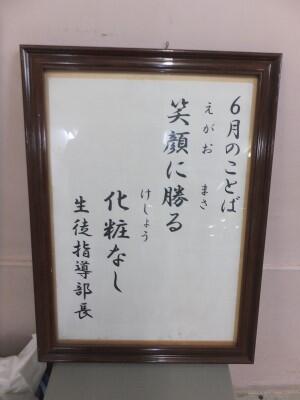 6月のことば
えがお まさ
笑顔に勝る
けしょう
化粧なし
生徒指導部長